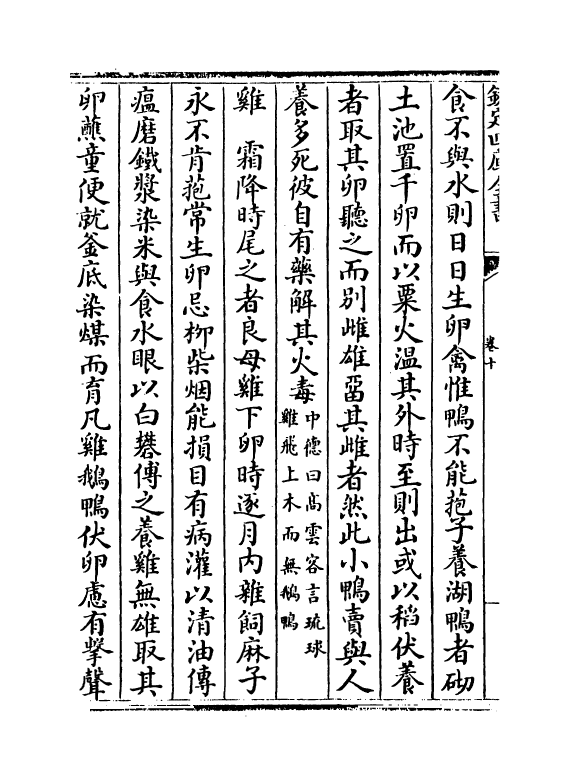 欽定四庫全書
卷十
食不與水則日日生卵禽惟鴨不能菢子養湖鴨者砌
土池置千卵而以粟火温其外時至則出或以稻伏養
者取其卵聽之而別雌雄畱其雌者然此小鴨賣與人
養多死彼自有藥解其火毒中德曰高雲容言琉球
雞飛上木而無鵝鴨
雞　霜降時尾之者良母雞下卵時逐月内雜飼麻子
永不肯菢常生卵忌柳柴烟能損目有病灌以清油傳
瘟磨鐵漿染米與食水眼以白礬傅之養雞無雄取其
卵蘸童便就釜底染煤而育凡雞鵝鴨伏卵慮有擊聲